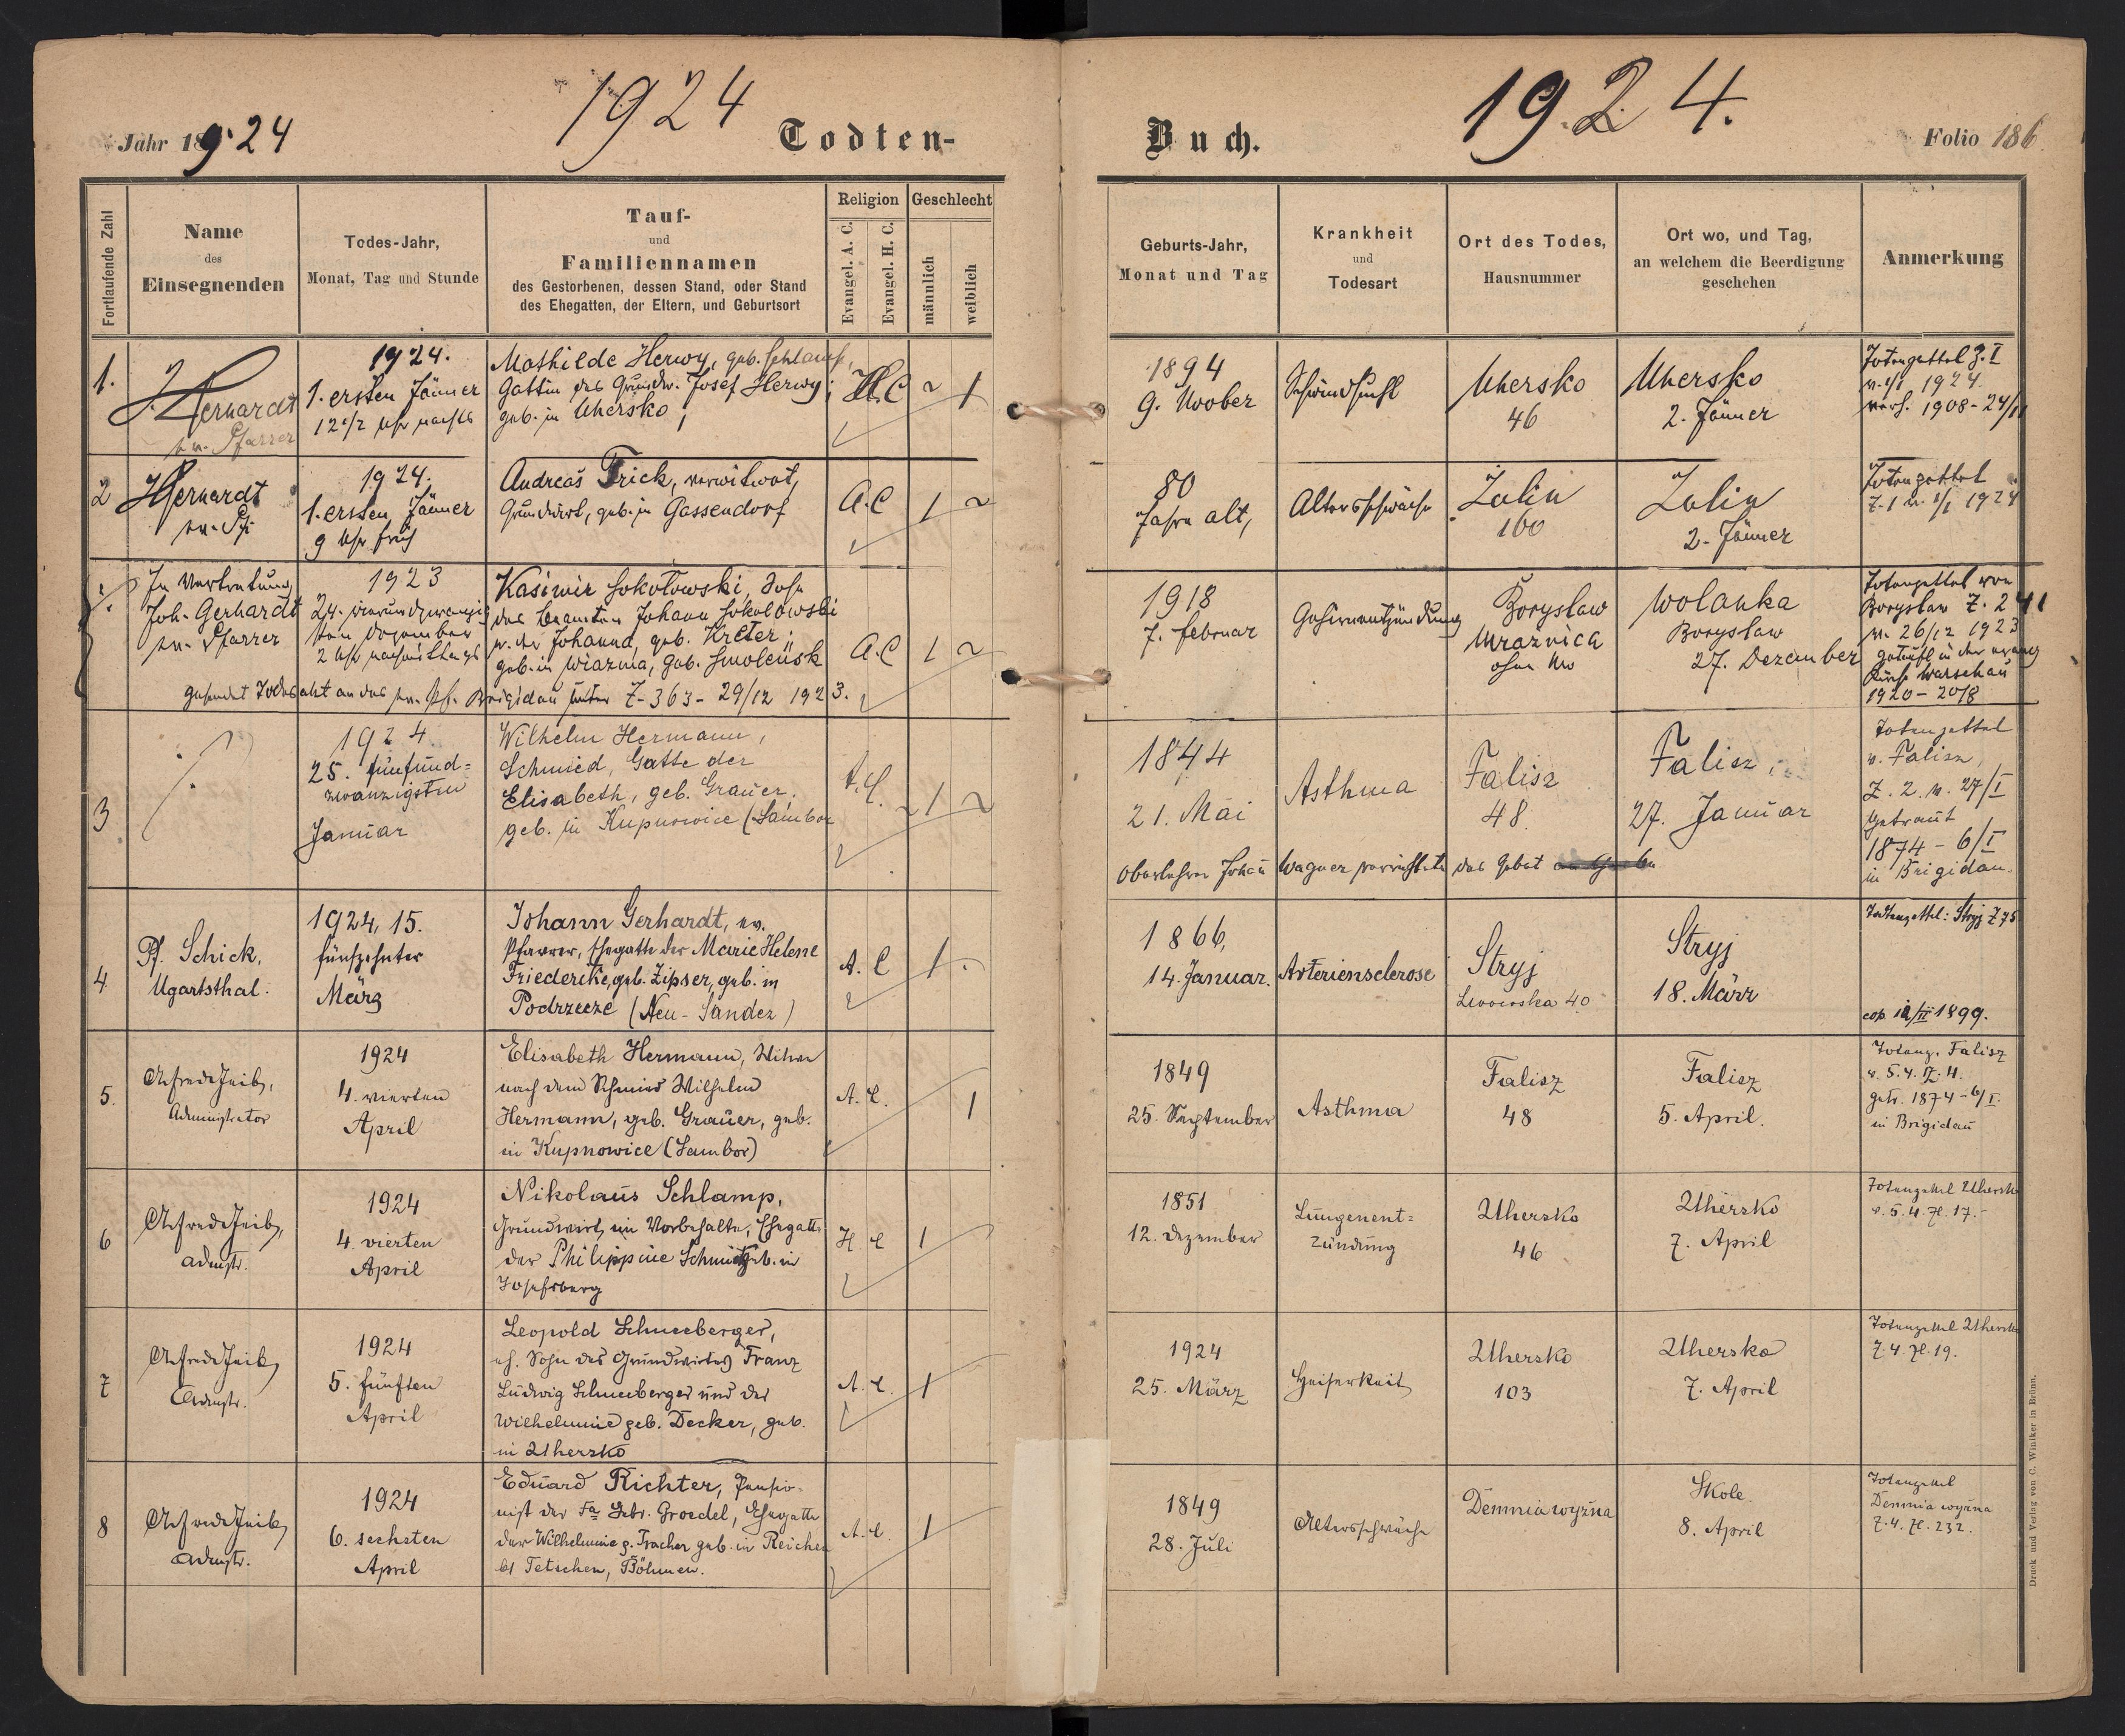 1924
1924.
Jahr 1924
Todten-
Buch.
Folio 186
Fortlaufende Zahl
Name
des
Einsegnenden
Todes-Jahr,
Monat, Tag und Stunde
Tauf-
und
Familiennamen
des Gestorbenen, dessen Stand, oder Stand
des Ehegatten, der Eltern, und Geburtsort
Religion
Evangel. A. C.
Evangel. H. C.
Geschlecht
männlich
weiblich
Geburts-Jahr,
Monat und Tag
Krankheit
und
Todesart
Ort des Todes,
Hausnummer
Ort wo, und Tag,
an welchem die Beerdigung
geschehen
Anmerkung
1.
J. Gerhardt
ev. Pfarrer
1924.
1. ersten Jänner
12 1/2 Uhr nachts
Mathilde Herwy, geb. Schlamp,
Gattin des Grundw. Josef Herwy;
geb. in Uhersko;
H.C
1
1894
9. 
Schwindsucht
Uhersko
46
Uhersko
2. Jänner
Totenzettel Z. I
v. 1/1 1924.
1908 - 24/11
2
J Gerhardt
ev. Pf.
1924.
1. ersten Jänner
9 Uhr früh
Andreas Frick, verwitwet,
Grundwirt, geb. in Gassendorf
A.C
1
80
Jahre alt,
Altersschwäche
Zulin
100
Zulin
2. Jänner
Totenzettel
Z. 1 v. 1/1 1924
In Vertretung
Joh. Gerhardt
ev. Pfarrer
1923
24. vierundzwanzig
sten Dezember
2 Uhr nachmittags
Kasimir Sokołowski, Sohn
des Beamten Johann Sokolowski
u. der Johanna, geb. Kreter;
geb. in Wiazma, Gub. Smolensk
A.C
1
gesendet Todesakt an das ev. Pf. Brigidau unter Z. 363 - 29/12 1923.
1918
7. Februar
Gehirnentzündung
Boryslaw
Mraznica
ohne No
Wolanka
Boryslaw
27. Dezember
Totenzettel von
Boryslaw Z. 241
v. 26/12 1923
getauft in der evang
Kirche Warschau
1920 - 2018
3
1924
25. fünfund=
zwanzigsten
Januar
Wilhelm Hermann,
Schmied, Gatte der
Elisabeth, geb. Grauer,
geb. in Kupnowice (Sambor
A.C.
1
1844
21. Mai
Asthma
Falisz
48.
Falisz,
27. Januar
Oberlehrer Johann Wagner verrichtete das Gebet
Totenzettel
v. Falisz,
Z. 2. v. 27/I
Getraut
1874 - 6/I
in Brigidau.
4
Pf. Schick,
Ugartsthal.
1924, 15.
fünfzehnter
März
Johann Gerhardt, ev.
Pfarrer, Ehegatte der Marie Helene
Friederike, geb. Zipser, geb. in
Podrzecze (Neu-Sandez)
A. C
1
1866,
14. Januar.
Arteriensclerose
Stryj
Lwowska 40
Stryj
18. März
Todtenzettel: Stryj Z 75
cop. 12/II 1899.
5.
Administrator
1924
4. vierten
April
Elisabeth Hermann, Witwe
nach dem Schmied Wilhelm
Hermann, geb. Grauer, geb.
in Kupnowice (Sambor)
A. C.
1
1849
25. September
Asthma
Falisz
48
Falisz
5. April.
Totenz. Falisz
v. 5. 4. Z. 4.
getr. 1874 - 6/I.
in Brigidau
6
Admstr.
1924
4. vierten
April
Nikolaus Schlamp,
Grundwirt im Vorbehalte, Ehegatte
der Philippine Schmidt geb. in
Josefsberg
H. C
1
1851
12. Dezember
Lungenent=
zündung
Uhersko
46
Uhersko
7. April
Totenzettel Uhersko
v. 5. 4. Zl. 17.
7
Admstr.
1924
5. fünften
April
Leopold Schneeberger,
eh. Sohn des Grundwirtes Franz
Ludwig Schneeberger und der
Wilhelmine geb. Decker, geb.
in Uhersko
A. C.
1
1924
25. März
Heiserkeit
Uhersko
103
Uhersko
7. April
Totenzettel Uhersko
7. 4. Zl. 19.
8
Admstr.
1924
6. sechsten
April
Eduard Richter, Pensio-
nist der Fa Gebr. Groedel, Ehegatte
der Wilhelmine g. Tracher geb. in Reichen
bei Tetschen, Böhmen.
A. C.
1
1849
28. Juli
Altersschwäche
Demnia wyżna
Skole
8. April
Totenzettel
Demnia wyżna
7. 4. Zl. 232.
Druck und Verlag von C. Winiker in Brünn.